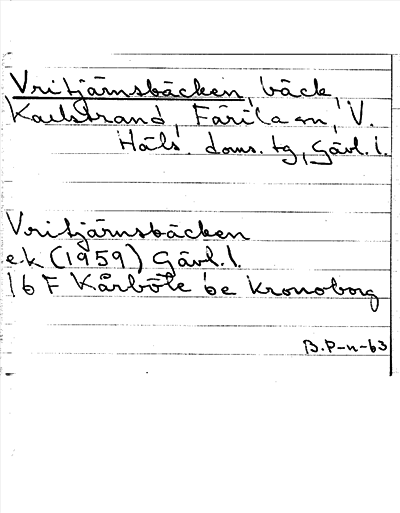 Vritjärnsbäcken, bäck,
Karlstrand, Färila sn, V.
Häls. doms. tg, Gävl. l.
Vritjärnsbäcken
ek (1959) Gävl. l.
16 F Kårböle 6e Kronoborg
B.P-n-63